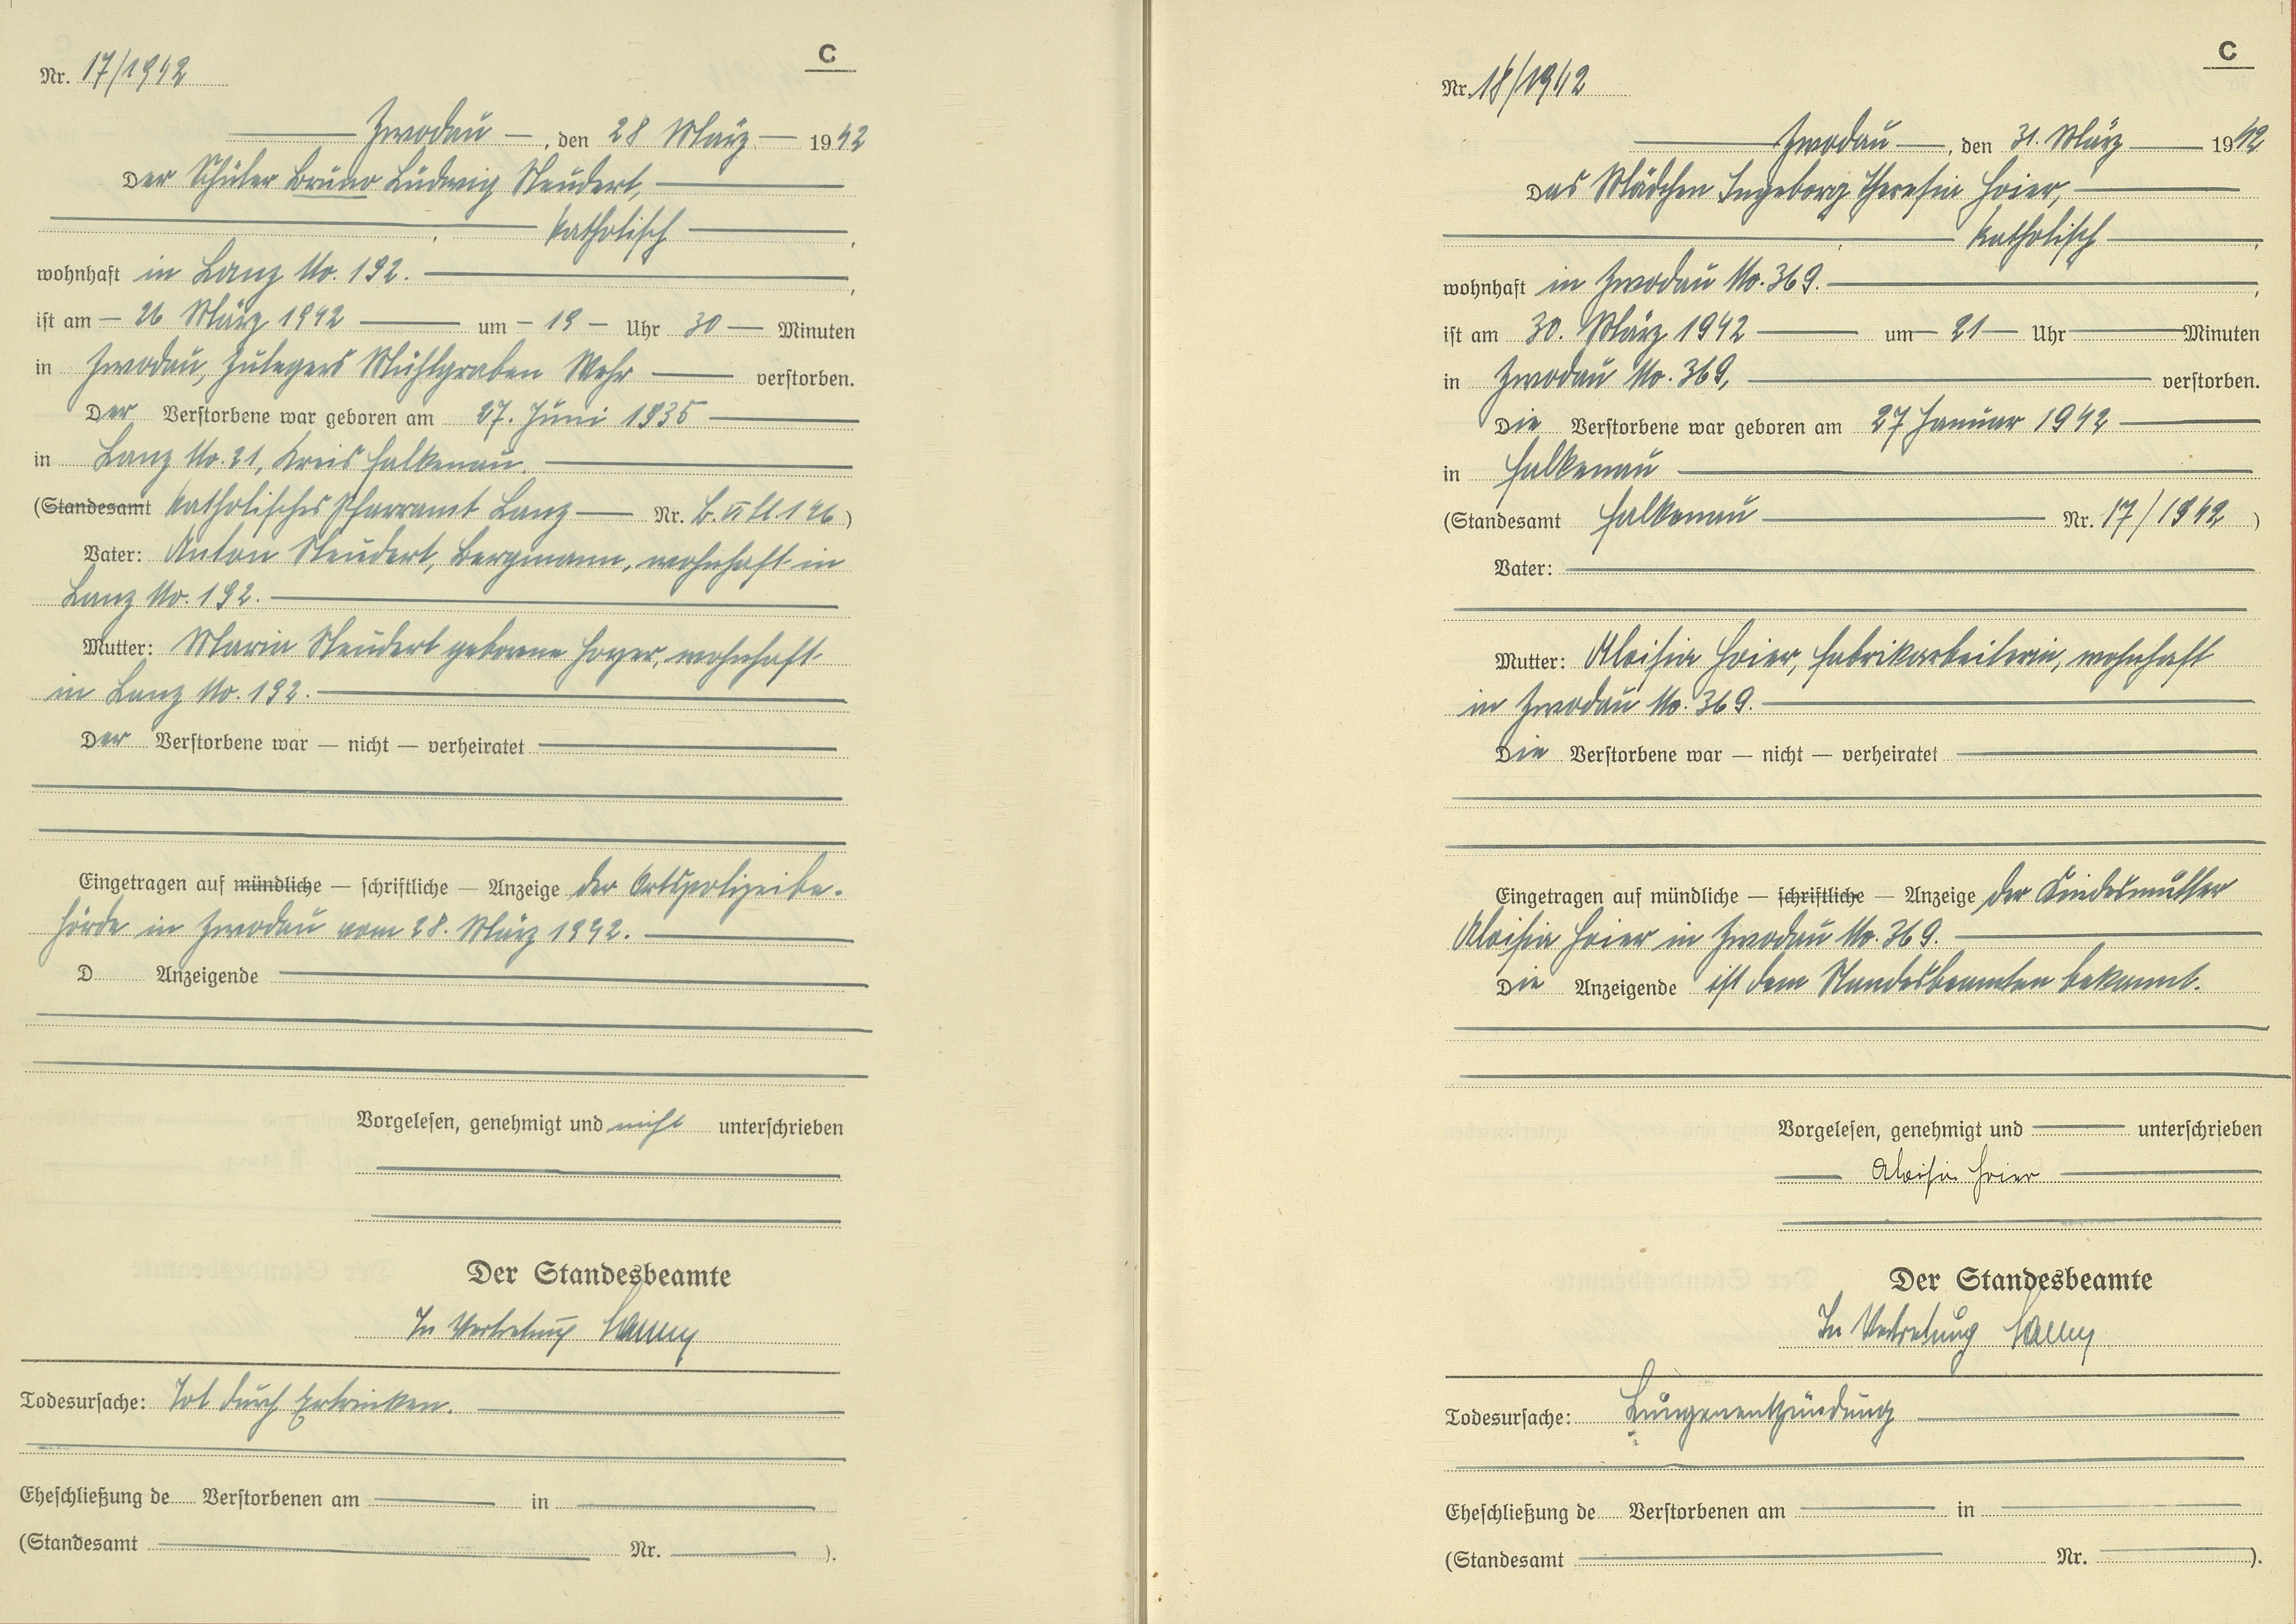 C
Nr. 17/1942
Zwodau, den 28 März 1942
Der Schüler Bruno Ludwig Steudert,
katholisch,
wohnhaft in Lanz No. 192.,
ist am 26 März 1942 um 19 Uhr 30 Minuten
in Zwodau, Zulegers Mühlgraben Wehr verstorben.
Der Verstorbene war geboren am 27. Juni 1935
in Lanz No. 21, Kreis Falkenau.
(Standesamt katholisches Pfarramt Lanz Nr.)
Vater: Anton Steudert, Bergmann, wohnhaft in
Lanz No. 192.
Mutter: Maria Steudert geborene Hoyer, wohnhaft
in Lanz No. 192.
Der Verstorbene war — nicht — verheiratet
Eingetragen auf mündliche — schriftliche — Anzeige der Ortspolizeibe-
hörde in Zwodau vom 28. März 1942.
D Anzeigende
Vorgelesen, genehmigt und nicht unterschrieben
Der Standesbeamte
In Vertretung
Todesursache: Tot durch Ertrinken.
Eheschließung de Verstorbenen am in
(Standesamt Nr. ).
C
Nr. 18/1942
Zwodau, den 31. März 1942
Das Mädchen Ingeborg Theresia Hoier,
katholisch,
wohnhaft in Zwodau No. 369.,
ist am 30. März 1942 um 21 Uhr Minuten
in Zwodau No. 369, verstorben.
Die Verstorbene war geboren am 27 Januar 1942
in Falkenau
(Standesamt Falkenau Nr. 17/1942)
Vater:
Mutter: Aloisia Hoier, Fabrikarbeiterin, wohnhaft
in Zwodau No. 369.
Die Verstorbene war — nicht — verheiratet
Eingetragen auf mündliche — schriftliche — Anzeige der Kindesmutter
Aloisia Hoier in Zwodau No. 369.
Die Anzeigende ist dem Standesbeamten bekannt.
Vorgelesen, genehmigt und unterschrieben
Aloisia Hoier
Der Standesbeamte
In Vertretung
Todesursache: Lungenentzündung
Eheschließung de Verstorbenen am in
(Standesamt Nr. ).